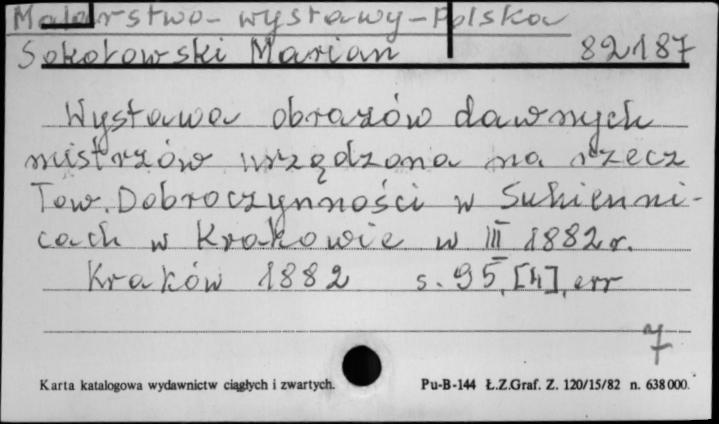 Malarstwo - wystawy - Polska
Sokołowski Marian 82187
Wystawa obrazów dawnych
mistrzów urządzona na rzecz
Tow. Dobroczynności w Sukienni-
cach w Krakowie w III 1882 r.
Kraków 1882 s. 95, [4], err
7
Karta katalogowa wydawnictw ciągłych i zwartych.
Pu-B-144 Ł.Z.Graf. Z. 120/15/82 n. 638000.